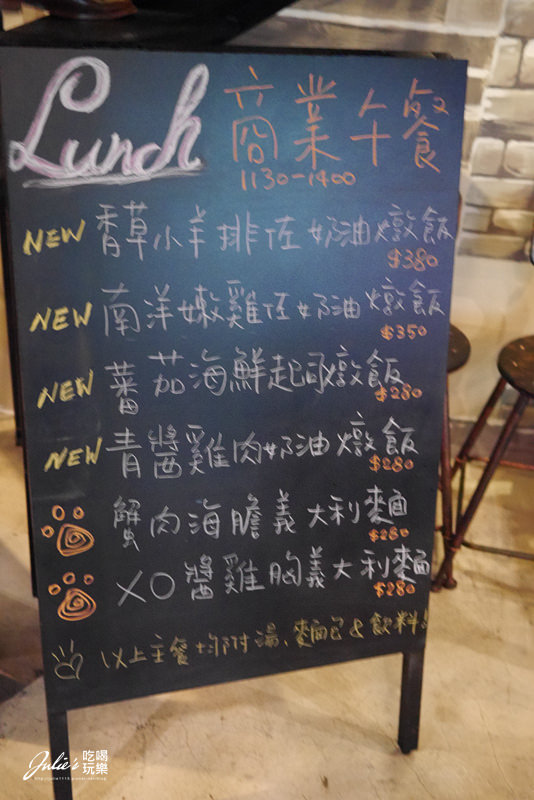 Lunch 商業午餐
1130-1400
NEW 香草小羊排佐奶油燉飯
$380
NEW 南洋嫩雞佐奶油燉飯
$350
NEW 蕃茄海鮮起司燉飯
$280
NEW 青醬雞肉奶油燉飯
$280
蟹肉海膽義大利麵
$280
XO醬雞胸義大利麵
$280
以上主餐均附湯、麵包&飲料!
Julie's 吃喝玩樂